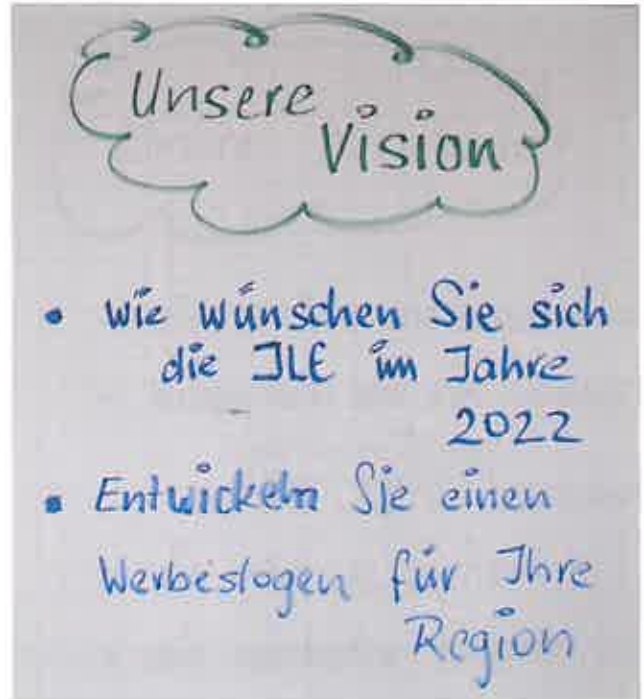 Unsere
Vision
• wie wünschen Sie sich
die ILE im Jahre
2022
• Entwickeln Sie einen
Werbeslogen für Ihre
Region